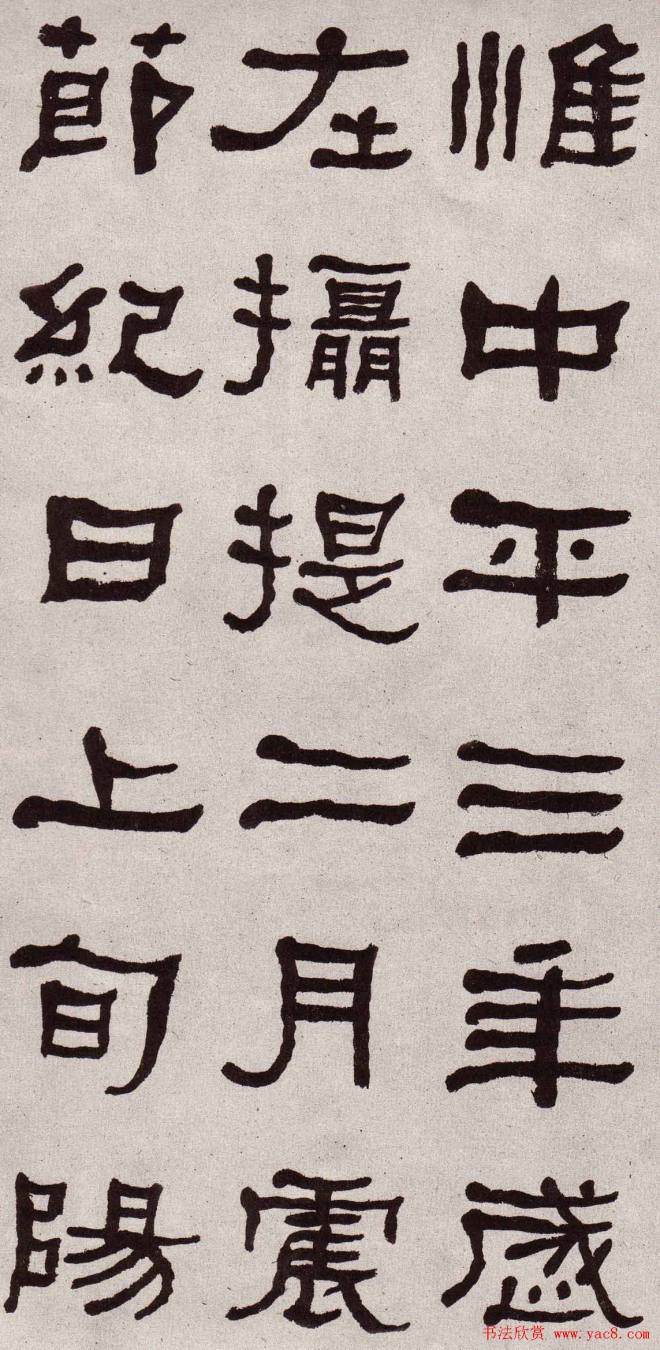 惟中平三年歲
在攝提二月震
節紀日上旬陽
书法欣赏 www.yac8.com